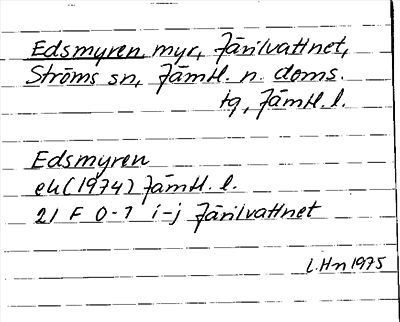 Edsmyren myr, Järilvattnet,
Ströms sn, Jämtl. n. doms.
tg, Jämtl. l.
Edsmyren
ek (1974) Jämtl. l.
21 F 0-1 i-j Järilvattnet
L.Hn 1975